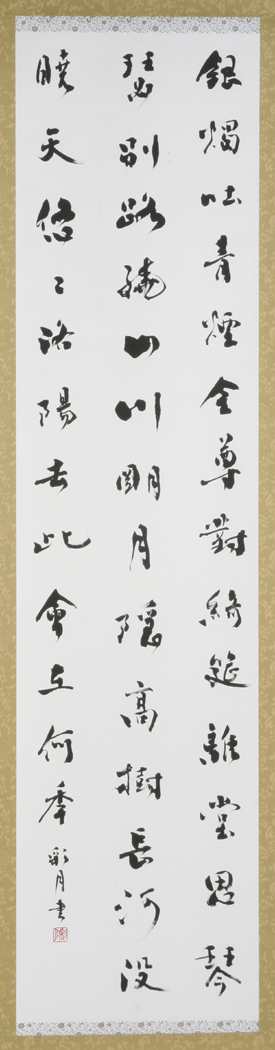 銀燭吐青煙金尊對綺筵離堂思琴
瑟別路繞山川明月隱高樹長河没
曉天悠々洛陽去此會在何年 彩月書